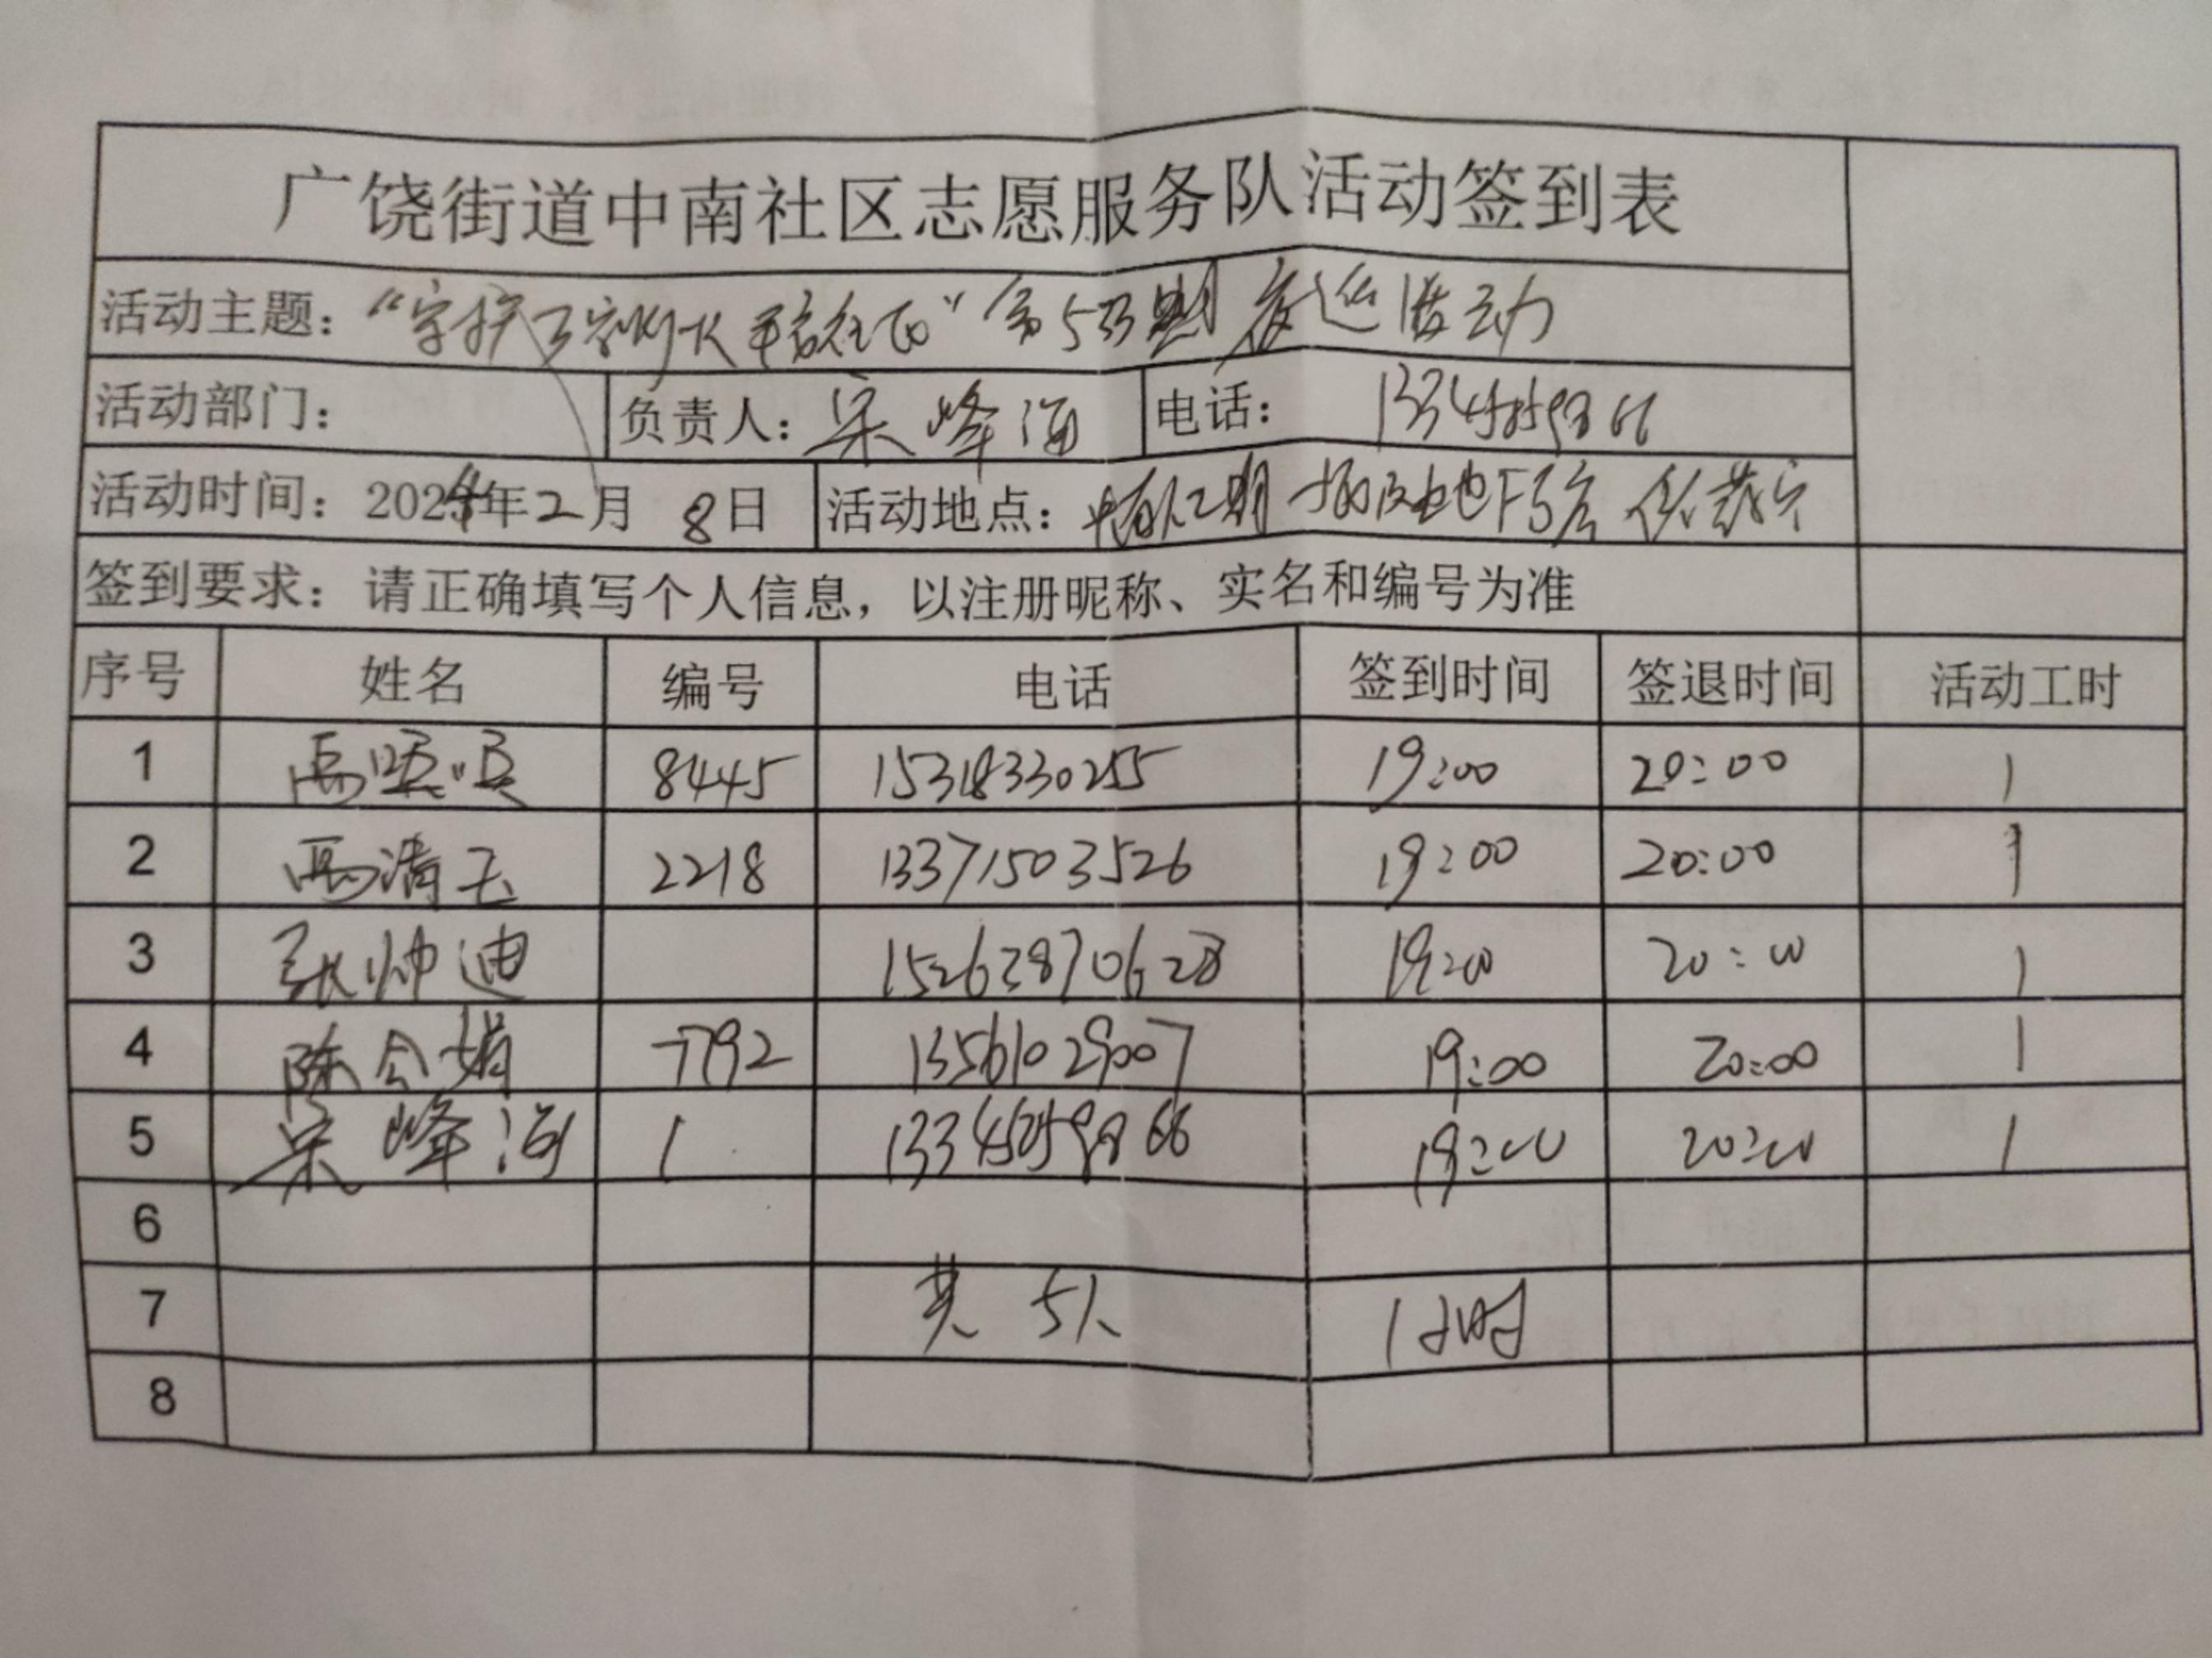 广饶街道中南社区志愿服务队活动签到表
活动主题：“守护万家灯火 平安社区”第53期 夜巡活动
活动部门： 负责人：宋峰海 电话：
活动时间：2024年2月8日 活动地点：
签到要求：请正确填写个人信息，以注册昵称、实名和编号为准
序号 姓名 编号 电话 签到时间 签退时间 活动工时
1 8445 15318330255 19:00 20:00 1
2 高清玉 2218 13371503526 19:00 20:00 1
3 张帅迪 15263870628 19:00 20:00 1
4 陈令娟 7792 13561029007 19:00 20:00 1
5 宋峰海 1 19:00 20:00 1
6
7 共5人 1小时
8